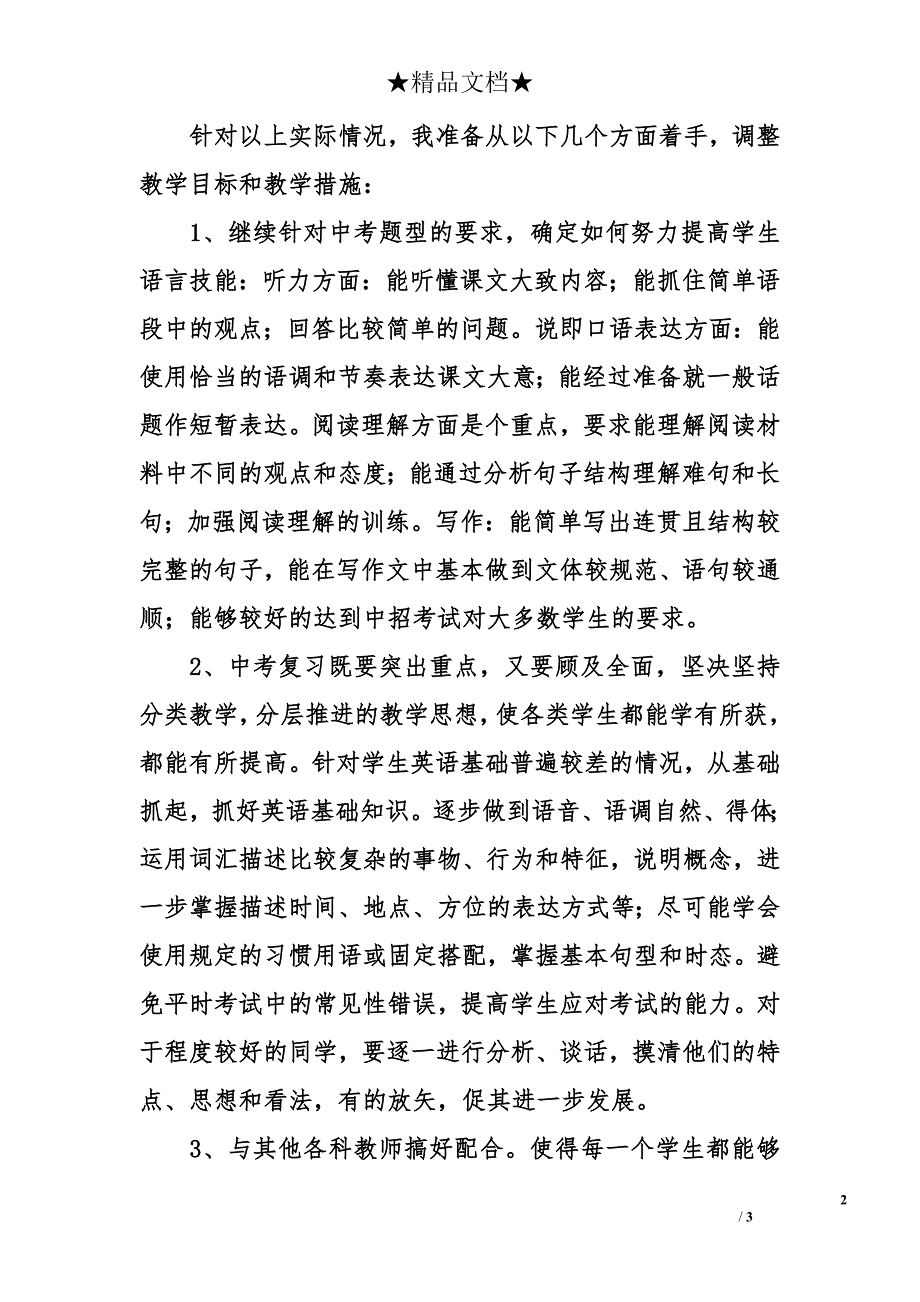 ★精品文档★
针对以上实际情况，我准备从以下几个方面着手，调整
教学目标和教学措施：
1、继续针对中考题型的要求，确定如何努力提高学生
语言技能：听力方面：能听懂课文大致内容；能抓住简单语
段中的观点；回答比较简单的问题。说即口语表达方面：能
使用恰当的语调和节奏表达课文大意；能经过准备就一般话
题作短暂表达。阅读理解方面是个重点，要求能理解阅读材
料中不同的观点和态度；能通过分析句子结构理解难句和长
句；加强阅读理解的训练。写作：能简单写出连贯且结构较
完整的句子，能在写作文中基本做到文体较规范、语句较通
顺；能够较好的达到中招考试对大多数学生的要求。
2、中考复习既要突出重点，又要顾及全面，坚决坚持
分类教学，分层推进的教学思想，使各类学生都能学有所获，
都能有所提高。针对学生英语基础普遍较差的情况，从基础
抓起，抓好英语基础知识。逐步做到语音、语调自然、得体；
运用词汇描述比较复杂的事物、行为和特征，说明概念，进
一步掌握描述时间、地点、方位的表达方式等；尽可能学会
使用规定的习惯用语或固定搭配，掌握基本句型和时态。避
免平时考试中的常见性错误，提高学生应对考试的能力。对
于程度较好的同学，要逐一进行分析、谈话，摸清他们的特
点、思想和看法，有的放矢，促其进一步发展。
3、与其他各科教师搞好配合。使得每一个学生都能够
2
/ 3